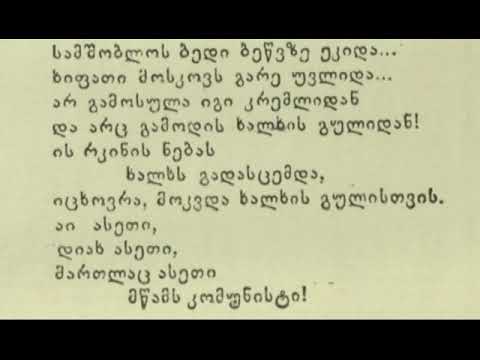 სამშობლოს ბედი ბეწვზე ეკიდა...
ხიფათი მოსკოვს გარე უვლიდა...
არ გამოსულა იგი კრემლიდან
და არც გამოდის ხალხის გულიდან!
ის რკინის ნებას
ხალხს გადასცემდა,
იცხოვრა, მოკვდა ხალხის გულისთვის.
აი ასეთი,
დიახ ასეთი,
მართლაც ასეთი
მწამს კომუნისტი!